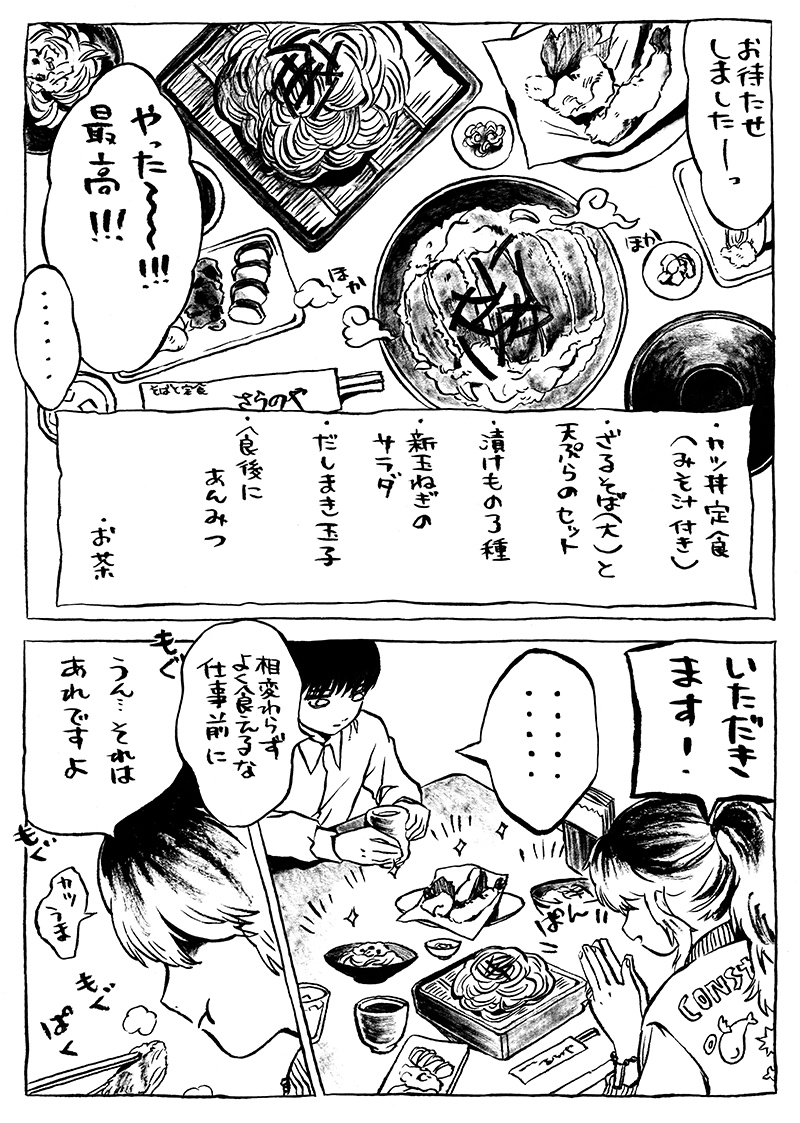 お待たせ
しましたーっ
ほか
やった～～～!!!
最高!!!
ほか
‥‥‥
そばと定食
さらのや
・カツ丼定食
（みそ汁付き）
・ざるそば（大）と
天ぷらのセット
・漬けもの3種
・新玉ねぎの
サラダ
・だしまき玉子
・食後に
あんみつ
・お茶
いただき
ます！
ぱん!!
CONST
相変わらず
よく食えるな
仕事前に
もぐ
うん…それは
あれですよ
もぐ
カツ
うま
もぐ
ぱく